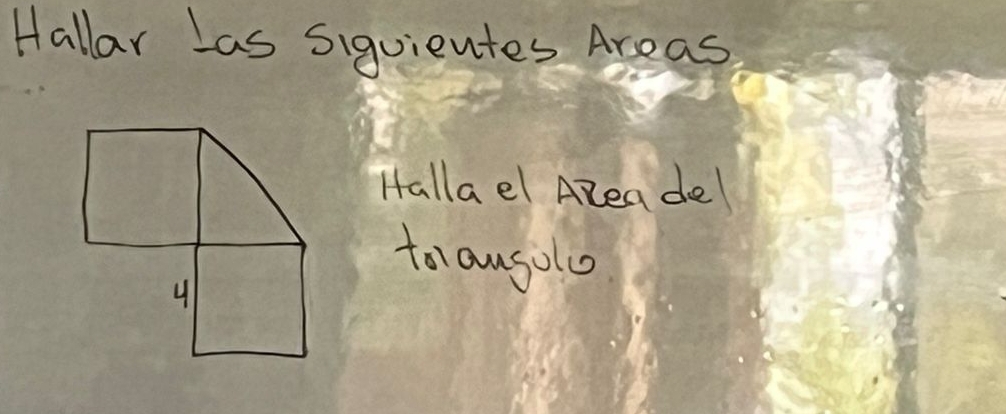 Hallar Las Siguientes Areas
Halla el Area del
triangulo
4